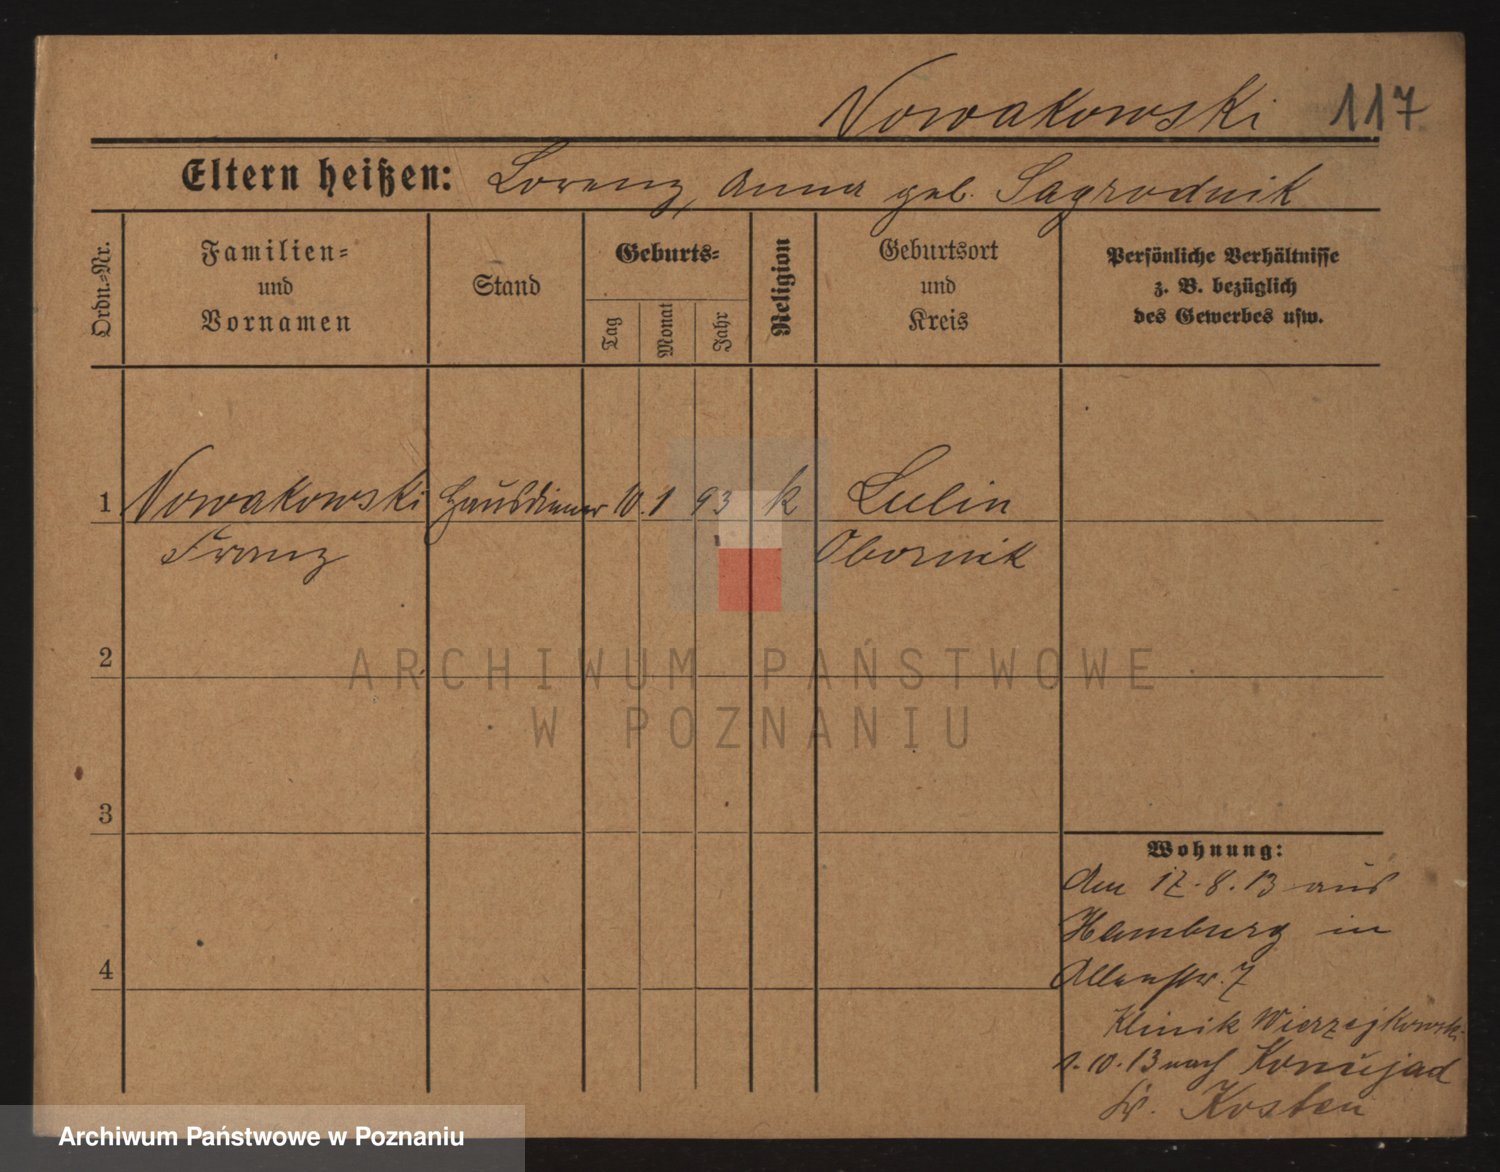 Nowakowski 117
Eltern heißen: Lorenz, Anna geb. Sagrodnik
Ordn.=Nr.
Familien=
und
Vornamen
Stand
Geburts=
Tag
Monat
Jahr
Religion
Geburtsort
und
Kreis
Persönliche Verhältnisse
z. B. bezüglich
des Gewerbes usw.
1 Nowakowski Hausdiener 10. 1 93 k Lulin
Franz Obornik
2
3
4
Wohnung:
Am 17.8.13 aus
Hamburg in
Allenstr. 7
Klinik Wierzejkowski
1.10.13 nach Konujad
Kr. Kosten
ARCHIWUM PAŃSTWOWE
W POZNANIU
Archiwum Państwowe w Poznaniu